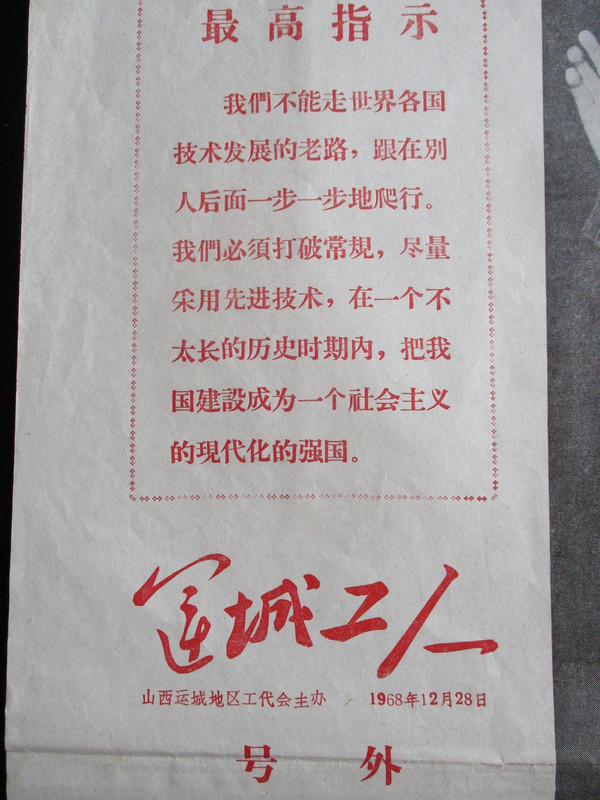 最高指示
我們不能走世界各国
技术发展的老路，跟在別
人后面一步一步地爬行。
我們必須打破常規，尽量
采用先进技术，在一个不
太长的历史时期內，把我
国建設成为一个社会主义
的現代化的强国。
运城工人
山西运城地区工代会主办 1968年12月28日
号外